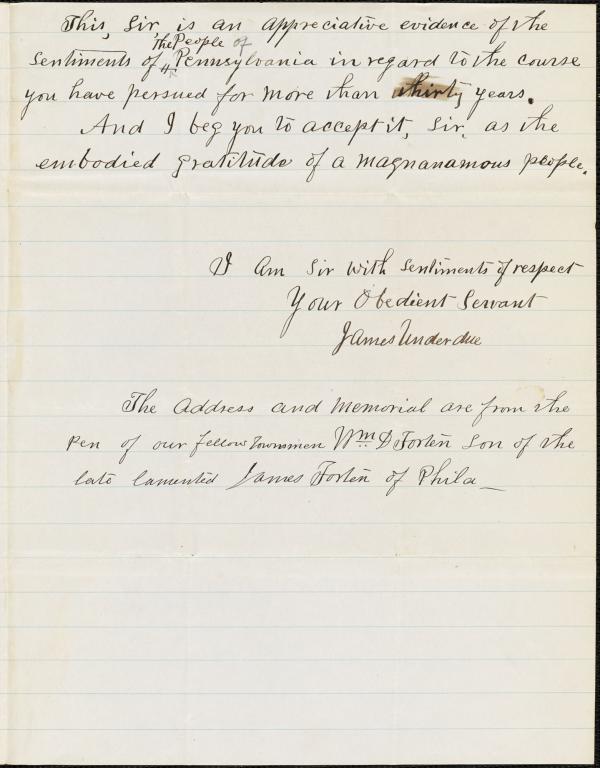 This, Sir is an appreciative evidence of the
The People of
Sentiments of Pennsylvania in regard to the course
you have persued for more than thirty years.
And I beg you to accept it, Sir, as the
embodied gratitude of a magnanamous people.
I Am Sir With Sentiments of respect
Your Obedient Servant
James Underdue
The Address and Memorial are from the
Pen of our fellow townsmen Wm D Forten Son of the
late lamented James Forten of Phila